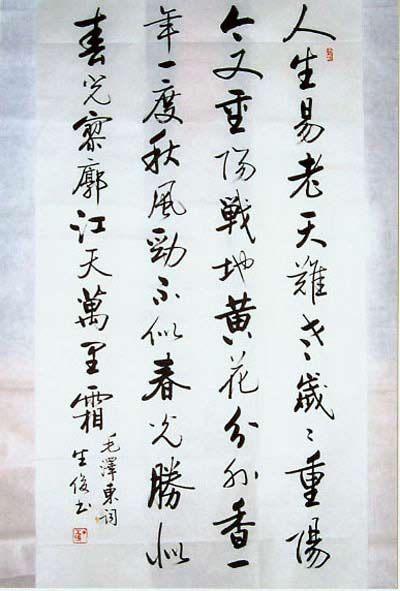 人生易老天難老歲〻重陽
今又重陽戦地黄花分外香一
年一度秋風勁不似春光勝似
春光寥廓江天萬里霜
毛澤東詞
生俊书